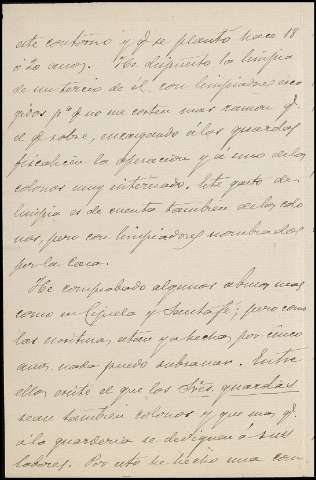 este contorno y q. se plantó hace 18
ó 20 años. He dispuesto la limpia
de un tercio de él, con limpiadores esco
gidos pª q no me corten mas ramon q.
el q. sobre, encargando á los guardas
fiscalicen la operacion y á uno de los
colonos muy interesado. Este gasto de
limpia es de cuenta tambien de los colo
nos, pero con limpiadores nombrados
por la Casa.
He comprobado algunos abusos mas
como en Cijuela y Santafé; pero como
las escrituras están ya hechas por cinco
años, nada puedo subsanar. Entre
ellos existe el que los Sres. guardas
sean tambien colonos y que mas q.
á la guarderia se dediquen á sus
labores. Por esto he hecho una com